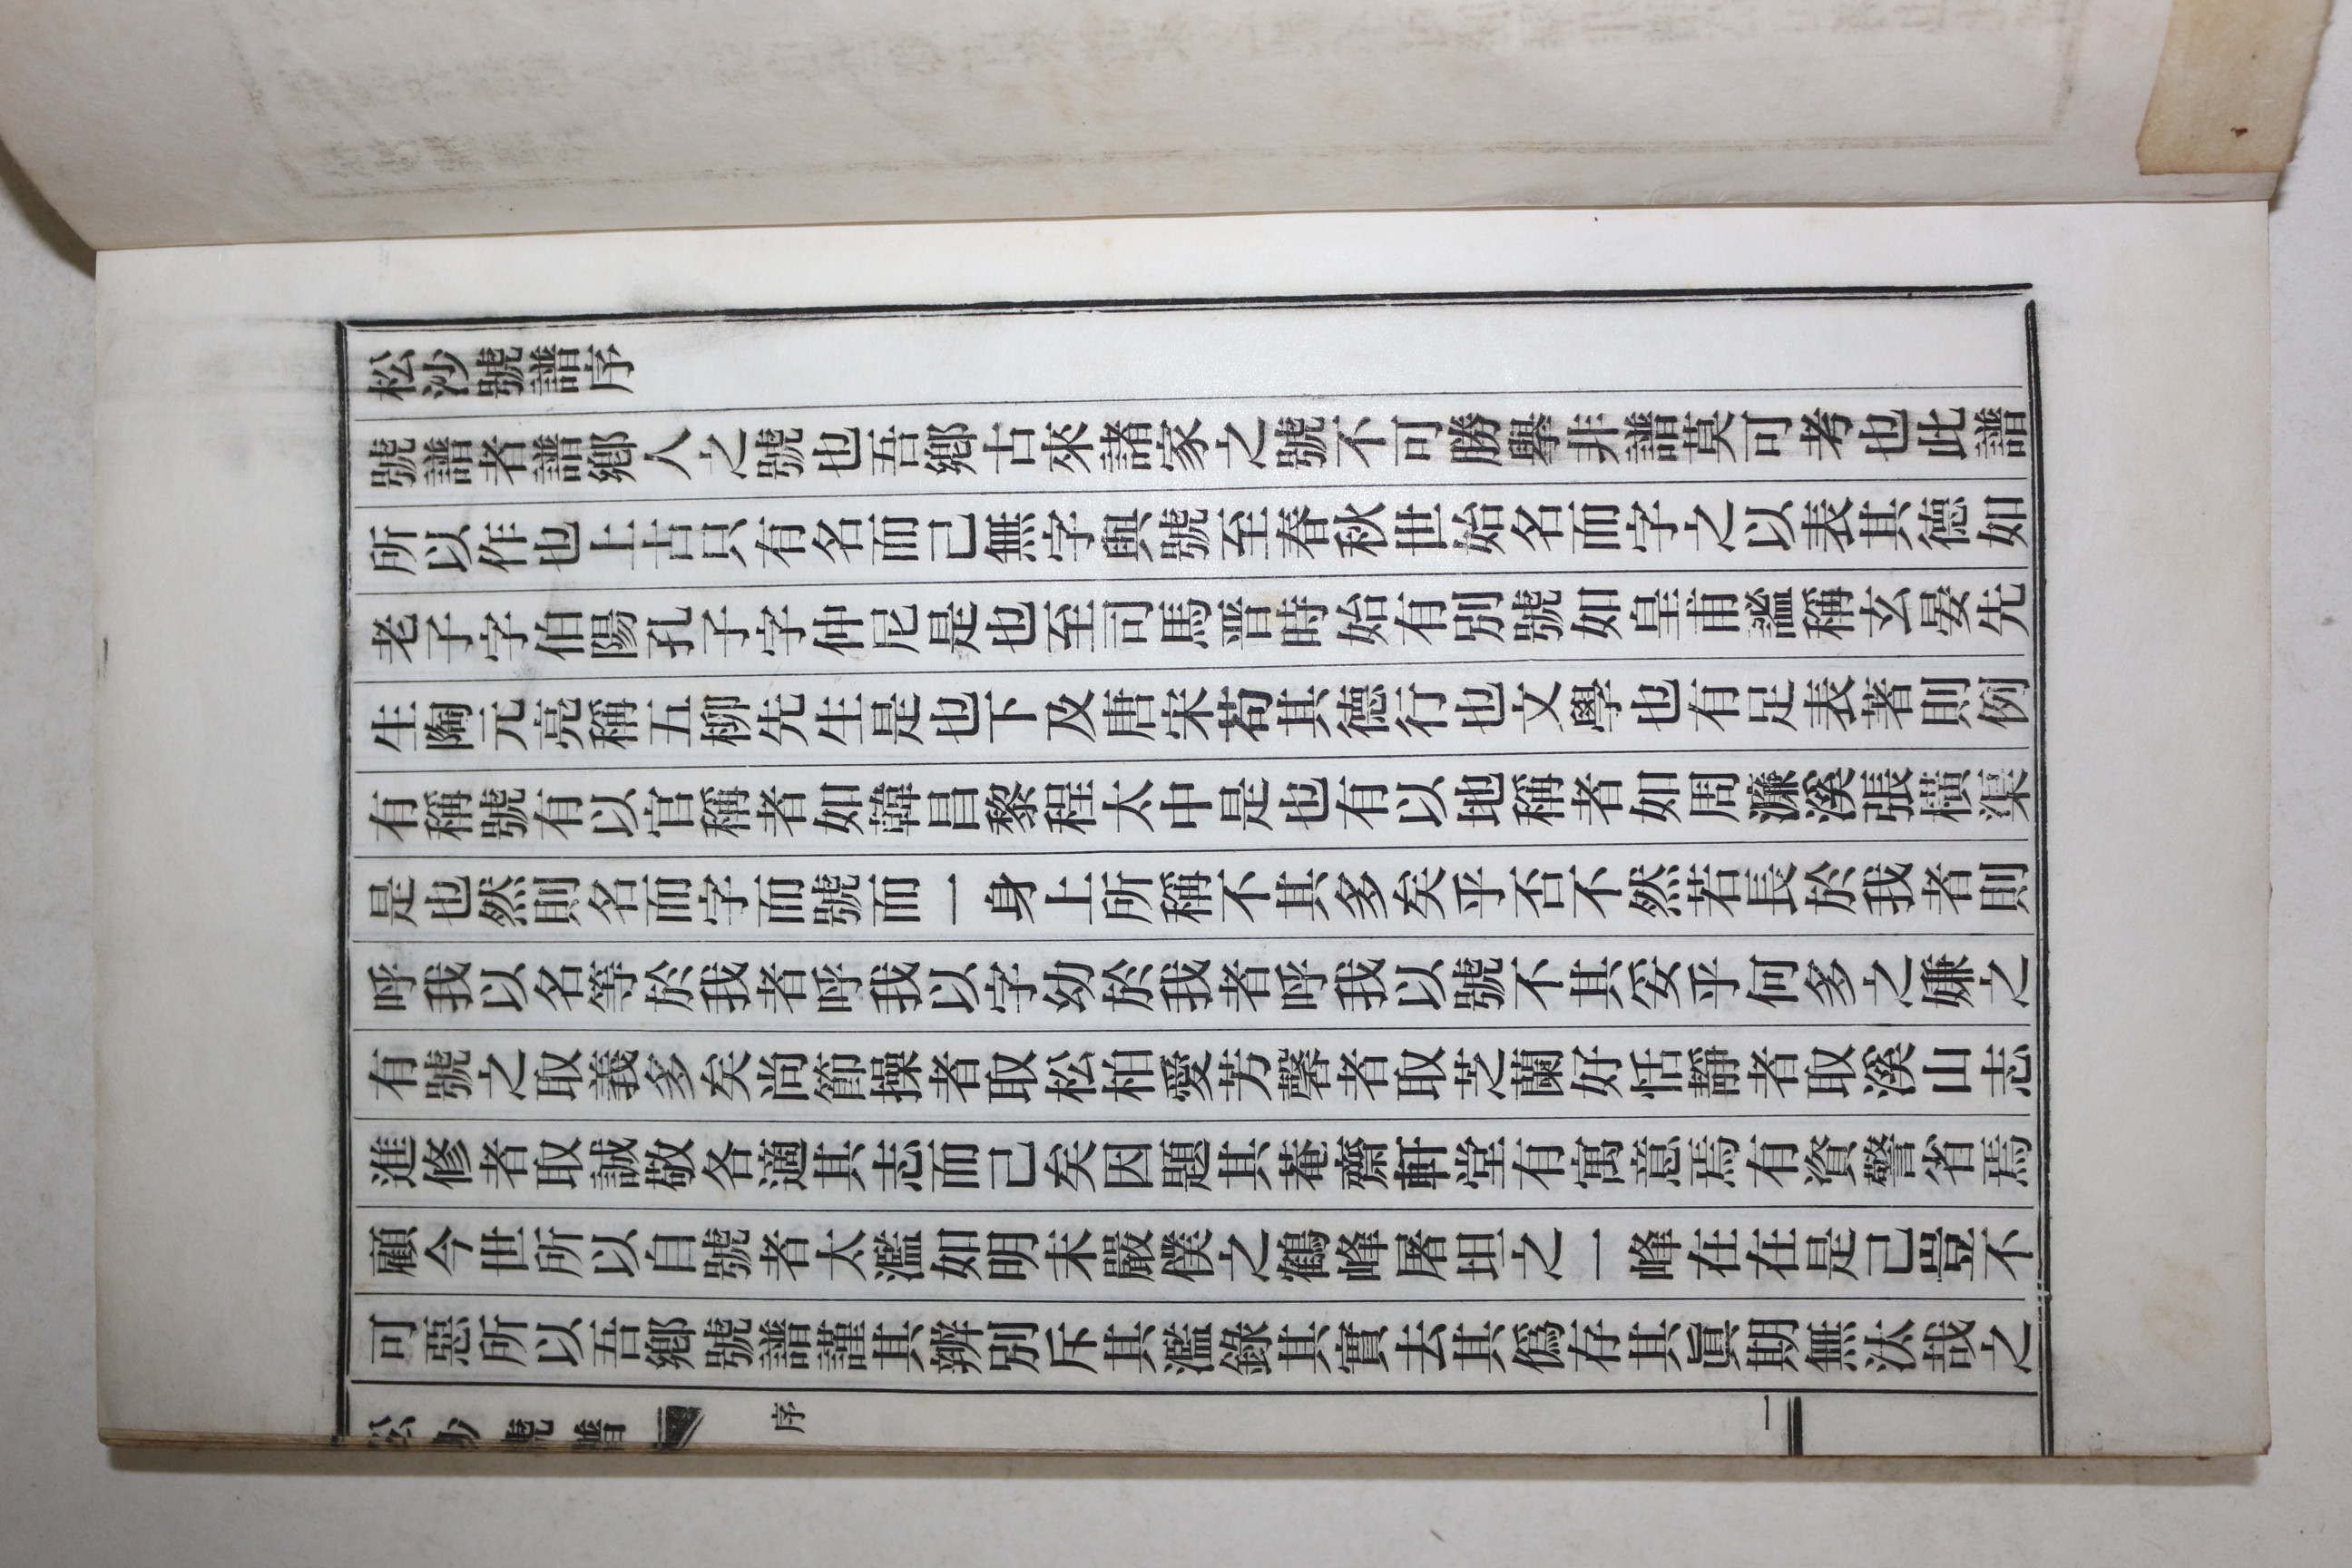 松沙號譜序
號譜者譜鄕人之號也吾鄕古來諸家之號不可勝擧非譜莫可考也此譜
所以作也上古只有名而己無字與號至春秋世始名而字之以表其德如
老子字伯陽孔子字仲尼是也至司馬晋時始有別號如皇甫謐稱玄晏先
生陶元亮稱五柳先生是也下及唐宋苟其德行也文學也有足表著則例
有稱號有以官稱者如韓昌黎程太中是也有以地稱者如周濂溪張橫渠
是也然則名而字而號而一身上所稱不其多矣乎否不然若長於我者則
呼我以名等於我者呼我以字幼於我者呼我以號不其妥乎何多之嫌之
有號之取義多矣尙節操者取松柏愛芳馨者取芝蘭好恬靜者取溪山志
進修者取誠敬各適其志而己矣因題其菴齋軒堂有寓意焉有資警省焉
顧今世所以自號者太濫如明末嚴僕之鶴峰屠坦之一峰在在是己豈不
可惡所以吾鄕號譜謹其辨別斥其濫錄其實去其僞存其眞期無汰哉之
松沙號譜 序 一